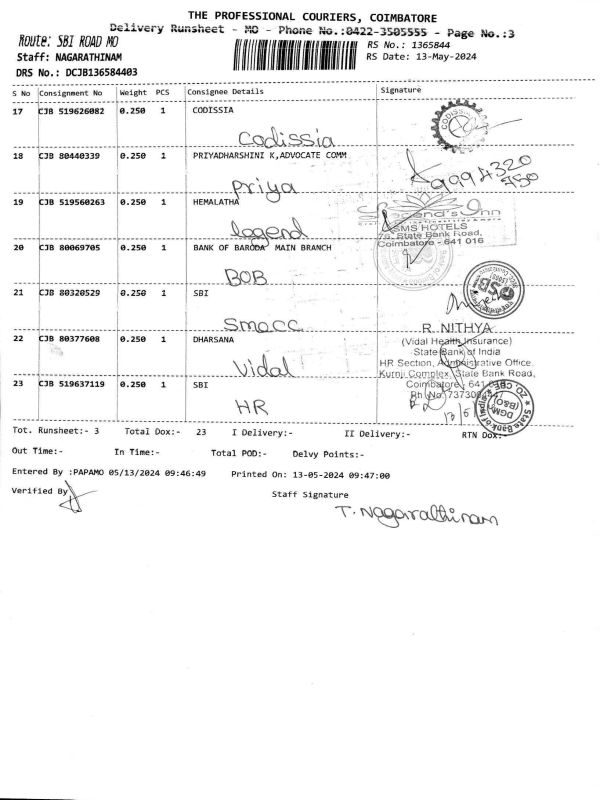 THE PROFESSIONAL COURIERS, COIMBATORE
Delivery Runsheet - MO - Phone No.:0422-3505555 - Page No.:3
Route: SBI ROAD MO
RS No.: 1365844
Staff: NAGARATHINAM
RS Date: 13-May-2024
DRS No.: DCJB136584403
S No Consignment No Weight PCS Consignee Details Signature
17 CJB 519626082 0.250 1 CODISSIA
CODISSIA
Codissia
18 CJB 80440339 0.250 1 PRIYADHARSHINI K,ADVOCATE COMM
Priya
9994320
750
19 CJB 519560263 0.250 1 HEMALATHA
legend
Legend's Inn
SMS HOTELS
76, State Bank Road,
Coimbatore - 641 016
20 CJB 80069705 0.250 1 BANK OF BARODA MAIN BRANCH
BOB
21 CJB 80320529 0.250 1 SBI
SMACC
22 CJB 80377608 0.250 1 DHARSANA
Vidal
R. NITHYA
(Vidal Health Insurance)
State Bank of India
HR Section, Administrative Office.
Kurnji Complex, State Bank Road,
23 CJB 519637119 0.250 1 SBI
HR
Coimbatore
Ph No
DGM
(B&O)
State Bank of
Tot. Runsheet:- 3 Total Dox:- 23 I Delivery:- II Delivery:- RTN Dox:-
Out Time:- In Time:- Total POD:- Delvy Points:-
Entered By :PAPAMO 05/13/2024 09:46:49 Printed On: 13-05-2024 09:47:00
Verified By
Staff Signature
T. Nagarathinam